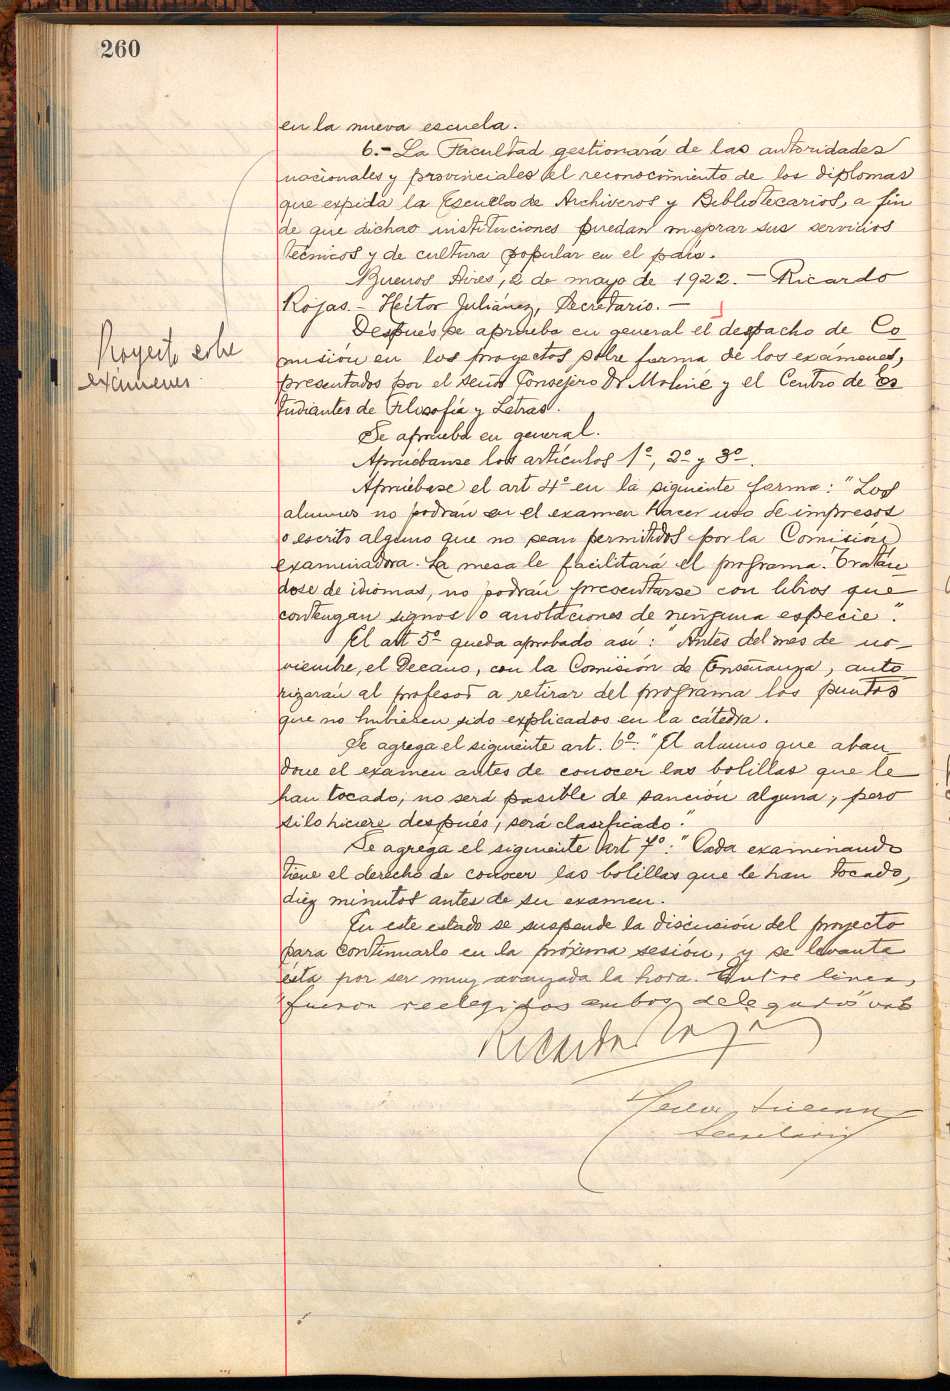 260
en la nueva escuela.
6.- La Facultad gestionará de las autoridades
nacionales y provinciales el reconocimiento de los diplomas
que expida la Escuela de Archiveros y Bibliotecarios, a fin
de que dichas instituciones puedan mejorar sus servicios
técnicos y de cultura popular en el país.
Buenos Aires, 2 de mayo de 1922. — Ricardo
Rojas. Héctor Juliánez, Secretario. —
Después se aprueba en general el despacho de Co
Proyecto sobre
exámenes.
misión en los proyectos sobre forma de los exámenes,
presentados por el señor Consejero Dr Moliné y el Centro de Es
tudiantes de Filosofía y Letras.
Se aprueba en general.
Apruébanse los artículos 1º, 2º y 3º.
Apruébase el art 4º en la siguiente forma: "Los
alumnos no podrán en el examen hacer uso de impresos
o escrito alguno que no sean permitidos por la Comisión
examinadora. La mesa le facilitará el programa. Tratán
dose de idiomas, no podrán presentarse con libros que
contengan signos o anotaciones de ninguna especie".
El art 5º queda aprobado así: "Antes del mes de no-
viembre, el Decano, con la Comisión de Enseñanza, auto
rizarán al profesor a retirar del programa los puntos
que no hubiesen sido explicados en la cátedra.
Se agrega el siguiente art. 6º. "El alumno que aban
done el examen antes de conocer las bolillas que le
han tocado, no será pasible de sanción alguna, pero
si lo hiciere después, será clasificado."
Se agrega el siguiente art 7º: "Cada examinando
tiene el derecho de conocer las bolillas que le han tocado,
diez minutos antes de su examen.
En este estado se suspende la discusión del proyecto
para continuarlo en la próxima sesión, y se levanta
ésta por ser muy avanzada la hora. Entre linea,
"fueron reelegidos ambos delegados" vale
Ricardo Rojas
Secretario